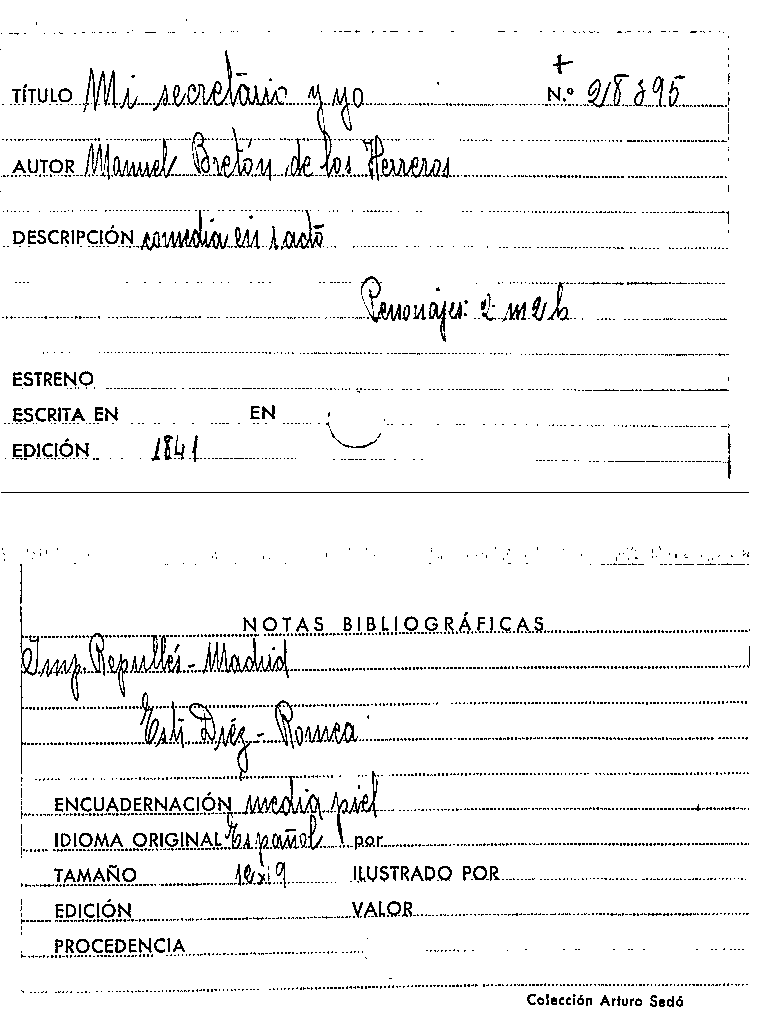 TÍTULO Mi secretario y yo N.º 218395
AUTOR Manuel Bretón de los Herreros
DESCRIPCIÓN comedia en 1 acto
Personajes: 2 m 2 h
ESTRENO
ESCRITA EN EN
EDICIÓN 1841
NOTAS BIBLIOGRÁFICAS
Imp. Repullés - Madrid
Diéz - Romea
ENCUADERNACIÓN media piel
IDIOMA ORIGINAL Español por
TAMAÑO 12x19 ILUSTRADO POR
EDICIÓN VALOR
PROCEDENCIA
Colección Arturo Sedó